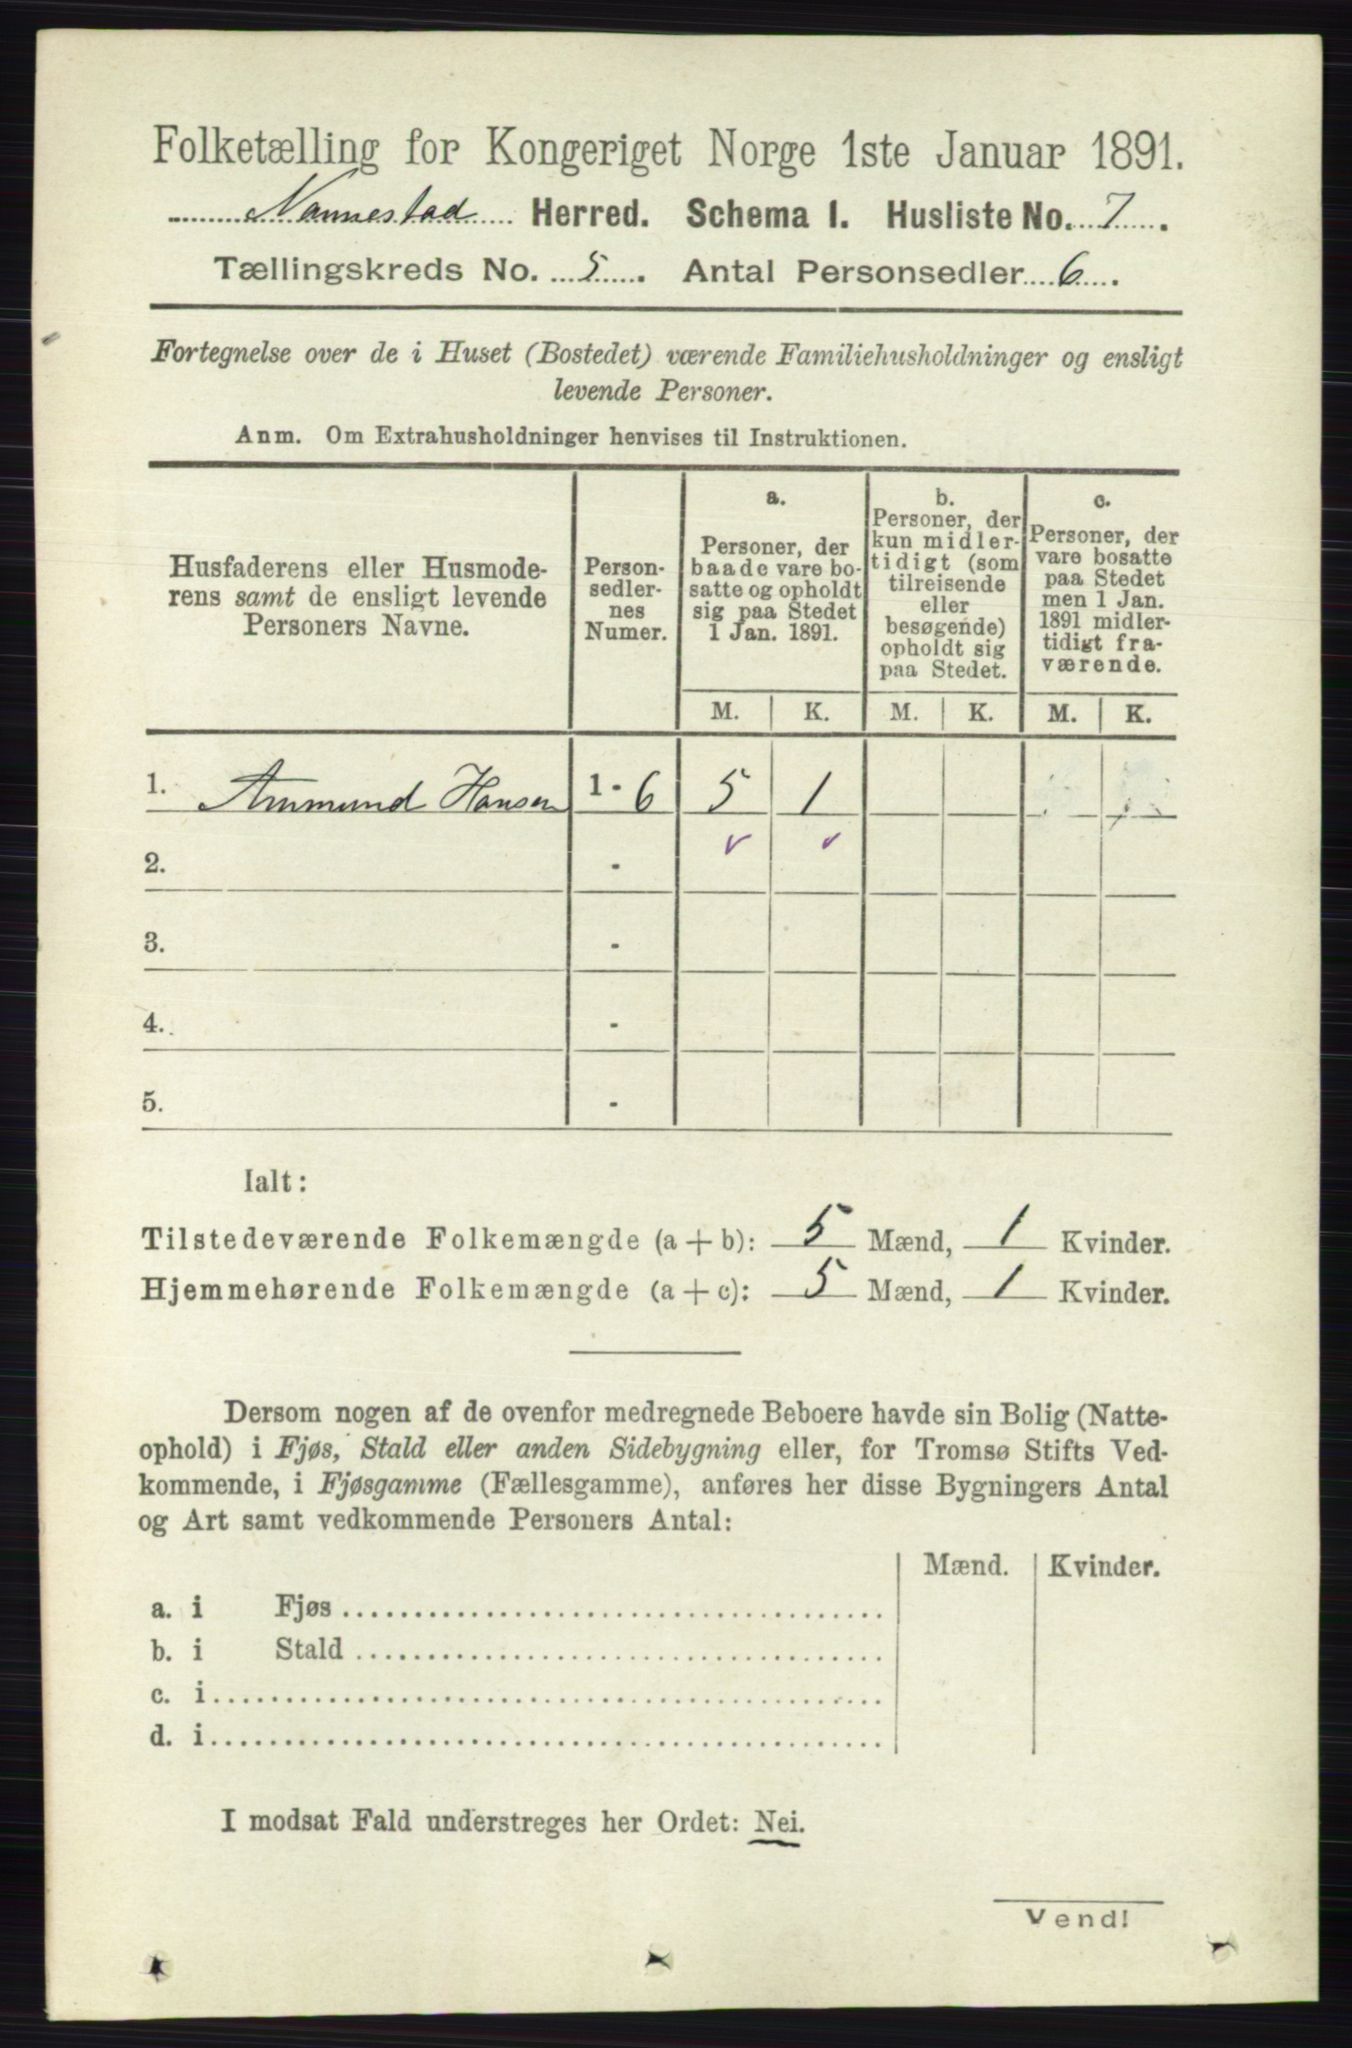 Folketælling for Kongeriget Norge 1ste Januar 1891.
Nannestad Herred. Schema I. Husliste No. 7.
Tællingskreds No. 5. Antal Personsedler 6.
Fortegnelse over de i Huset (Bostedet) værende Familiehusholdninger og ensligt
levende Personer.
Anm. Om Extrahusholdninger henvises til Instruktionen.
Husfaderens eller Husmode-
rens samt de ensligt levende
Personers Navne.
Person-
sedler-
nes
Numer.
a.
Personer, der
baade vare bo-
satte og opholdt
sig paa Stedet
1 Jan. 1891.
b.
Personer, der
kun midler-
tidigt (som
tilreisende
eller
besøgende)
opholdt sig
paa Stedet.
c.
Personer, der
vare bosatte
paa Stedet
men 1 Jan.
1891 midler-
tidigt fra-
værende.
M. K. M. K. M. K.
1. Ammund Hansen 1 - 6 5 1
2. -
3. -
4. -
5. -
Ialt:
Tilstedeværende Folkemængde (a + b): 5 Mænd, 1 Kvinder.
Hjemmehørende Folkemængde (a + c): 5 Mænd, 1 Kvinder.
Dersom nogen af de ovenfor medregnede Beboere havde sin Bolig (Natte-
ophold) i Fjøs, Stald eller anden Sidebygning eller, for Tromsø Stifts Ved-
kommende, i Fjøsgamme (Fællesgamme), anføres her disse Bygningers Antal
og Art samt vedkommende Personers Antal:
Mænd. Kvinder.
a. i Fjøs
b. i Stald
c. i
d. i
I modsat Fald understreges her Ordet: Nei.
Vend!